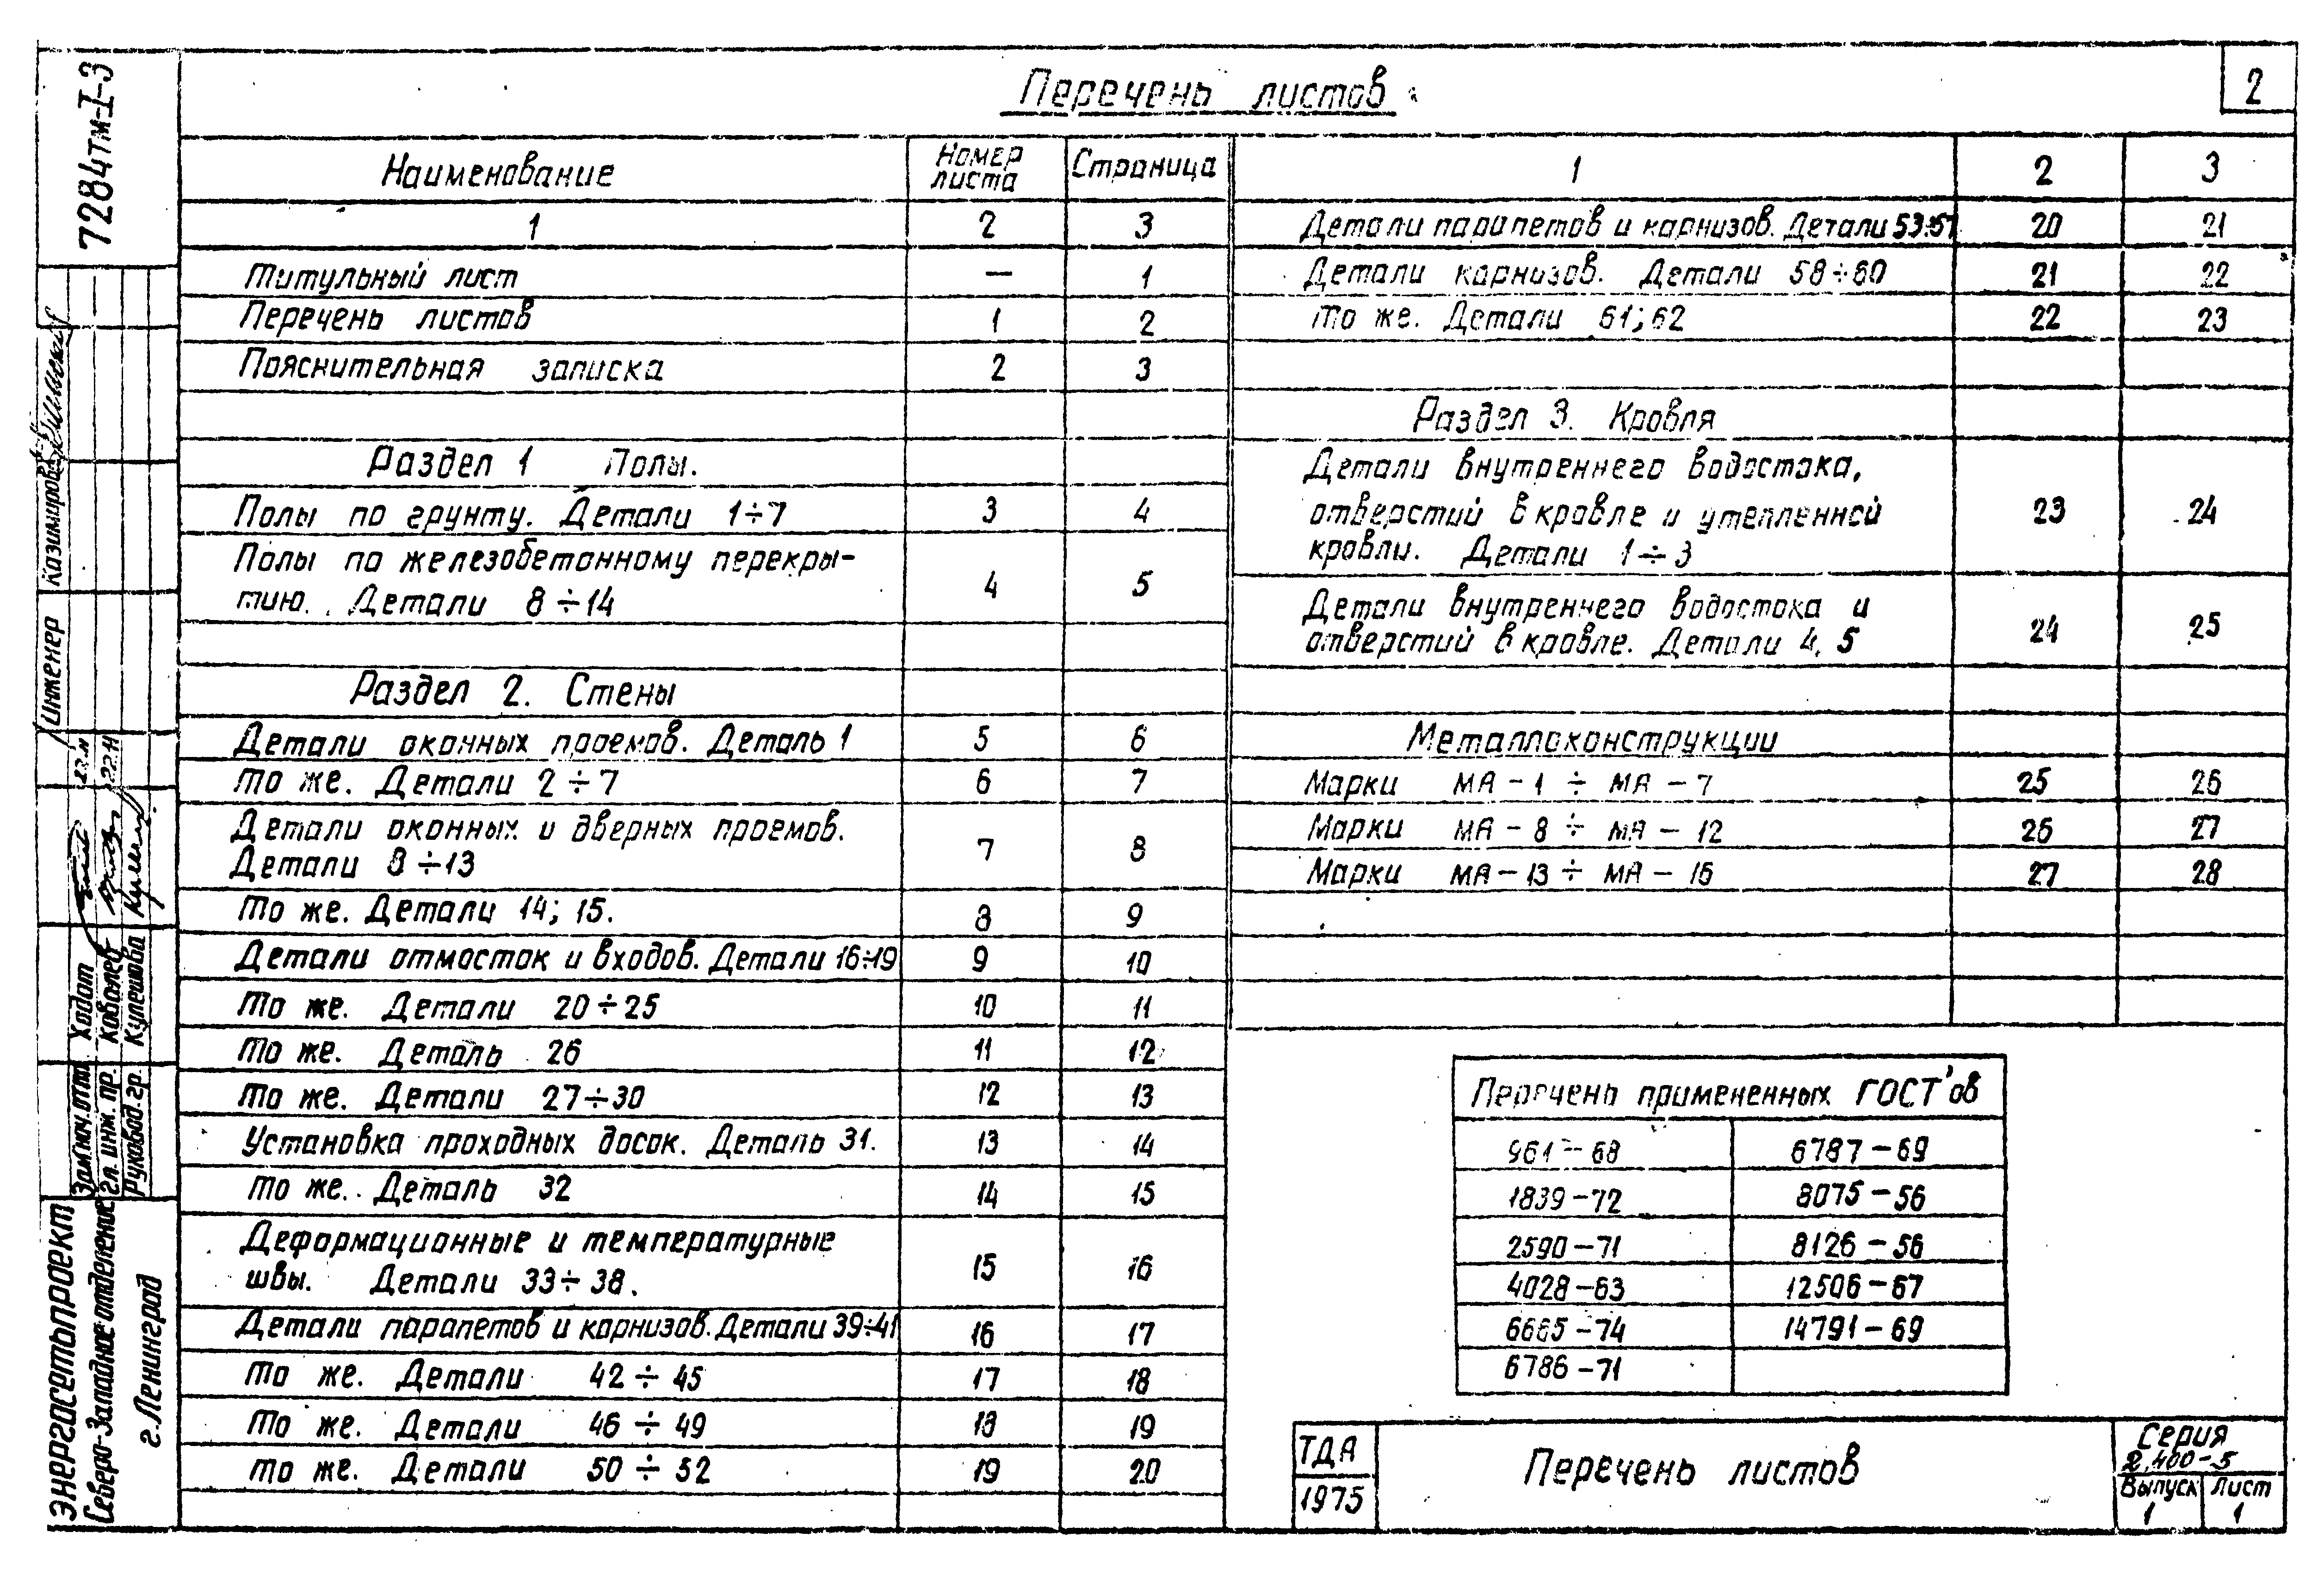 2
Перечень листов
Наименование Номер листа Страница
1 2 3
Титульный лист — 1
Перечень листов 1 2
Пояснительная записка 2 3
Раздел 1 Полы.
Полы по грунту. Детали 1÷7 3 4
Полы по железобетонному перекры-
тию. Детали 8÷14 4 5
Раздел 2. Стены
Детали оконных проемов. Деталь 1 5 6
То же. Детали 2÷7 6 7
Детали оконных и дверных проемов.
Детали 8÷13 7 8
То же. Детали 14; 15. 8 9
Детали отмосток и входов. Детали 16÷19 9 10
То же. Детали 20÷25 10 11
То же. Деталь 26 11 12
То же. Детали 27÷30 12 13
Установка проходных досок. Деталь 31. 13 14
То же. Деталь 32 14 15
Деформационные и температурные
швы. Детали 33÷38. 15 16
Детали парапетов и карнизов. Детали 39÷41 16 17
То же. Детали 42÷45 17 18
То же. Детали 46÷49 18 19
То же. Детали 50÷52 19 20
1 2 3
Детали парапетов и карнизов. Детали 53÷57 20 21
Детали карнизов. Детали 58÷60 21 22
То же. Детали 61; 62 22 23
Раздел 3. Кровля
Детали внутреннего водостока,
отверстий в кровле и утепленной
кровли. Детали 1÷3 23 24
Детали внутреннего водостока и
отверстий в кровле. Детали 4, 5 24 25
Металлоконструкции
Марки МА-1 ÷ МА-7 25 26
Марки МА-8 ÷ МА-12 26 27
Марки МА-13 ÷ МА-16 27 28
Перечень примененных ГОСТ'ов
961-68 6787-69
1839-72 8075-56
2590-71 8126-56
4028-63 12506-67
6665-74 14791-69
6786-71
ТДА
1975
Перечень листов
Серия
2.400-5
Выпуск Лист
1 1
7284тм-I-3
Инженер Казимирова
Зам.нач.отп. Ходот
Гл. инж. пр. Ковалев
Руковод. гр. Кулешова
Энергосетьпроект
Северо-Западное отделение
г. Ленинград